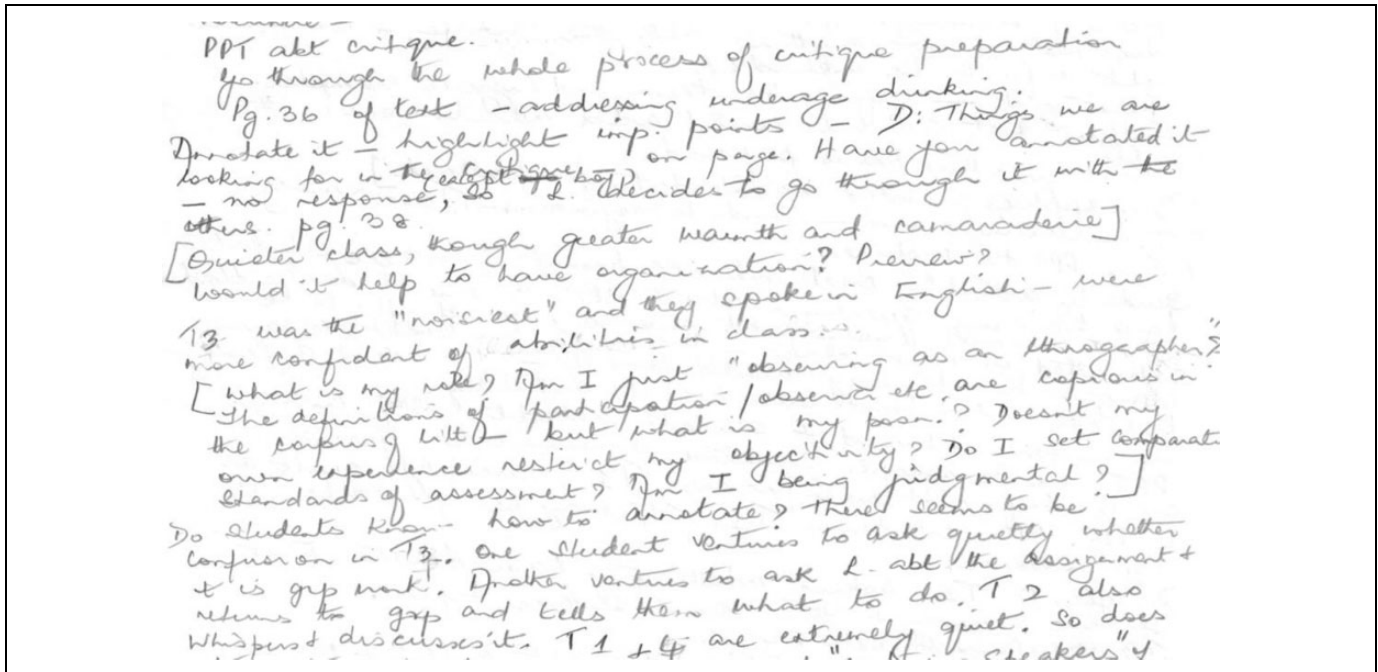 PPT abt critique.
Go through the whole process of critique preparation
Pg. 36 of text – addressing underage drinking.
Annotate it – highlight imp. points – D: Things we are
looking for in the on page. Have you annotated it
– no response, so L. decides to go through it with the
others. pg. 38.
[Quieter class, though greater warmth and camaraderie]
Would it help to have organization? Preview?
T3 was the "noisiest" and they spoke in English – were
more confident of abilities in class...
[What is my role? Am I just "observing as an ethnographer"?
The definitions of participation/observer etc. are copious in
the corpus of litt – but what is my posn.? Doesn't my
own experience restrict my objectivity? Do I set comparat
standards of assessment? Am I being judgmental?]
Do students know how to annotate? There seems to be
confusion in T3. One student ventures to ask quietly whether
it is grp work. Another ventures to ask L. abt the assignment +
returns to grp and tells them what to do. T2 also
whispers + discusses it. T1 + 4 are extremely quiet. So does
speakers" of